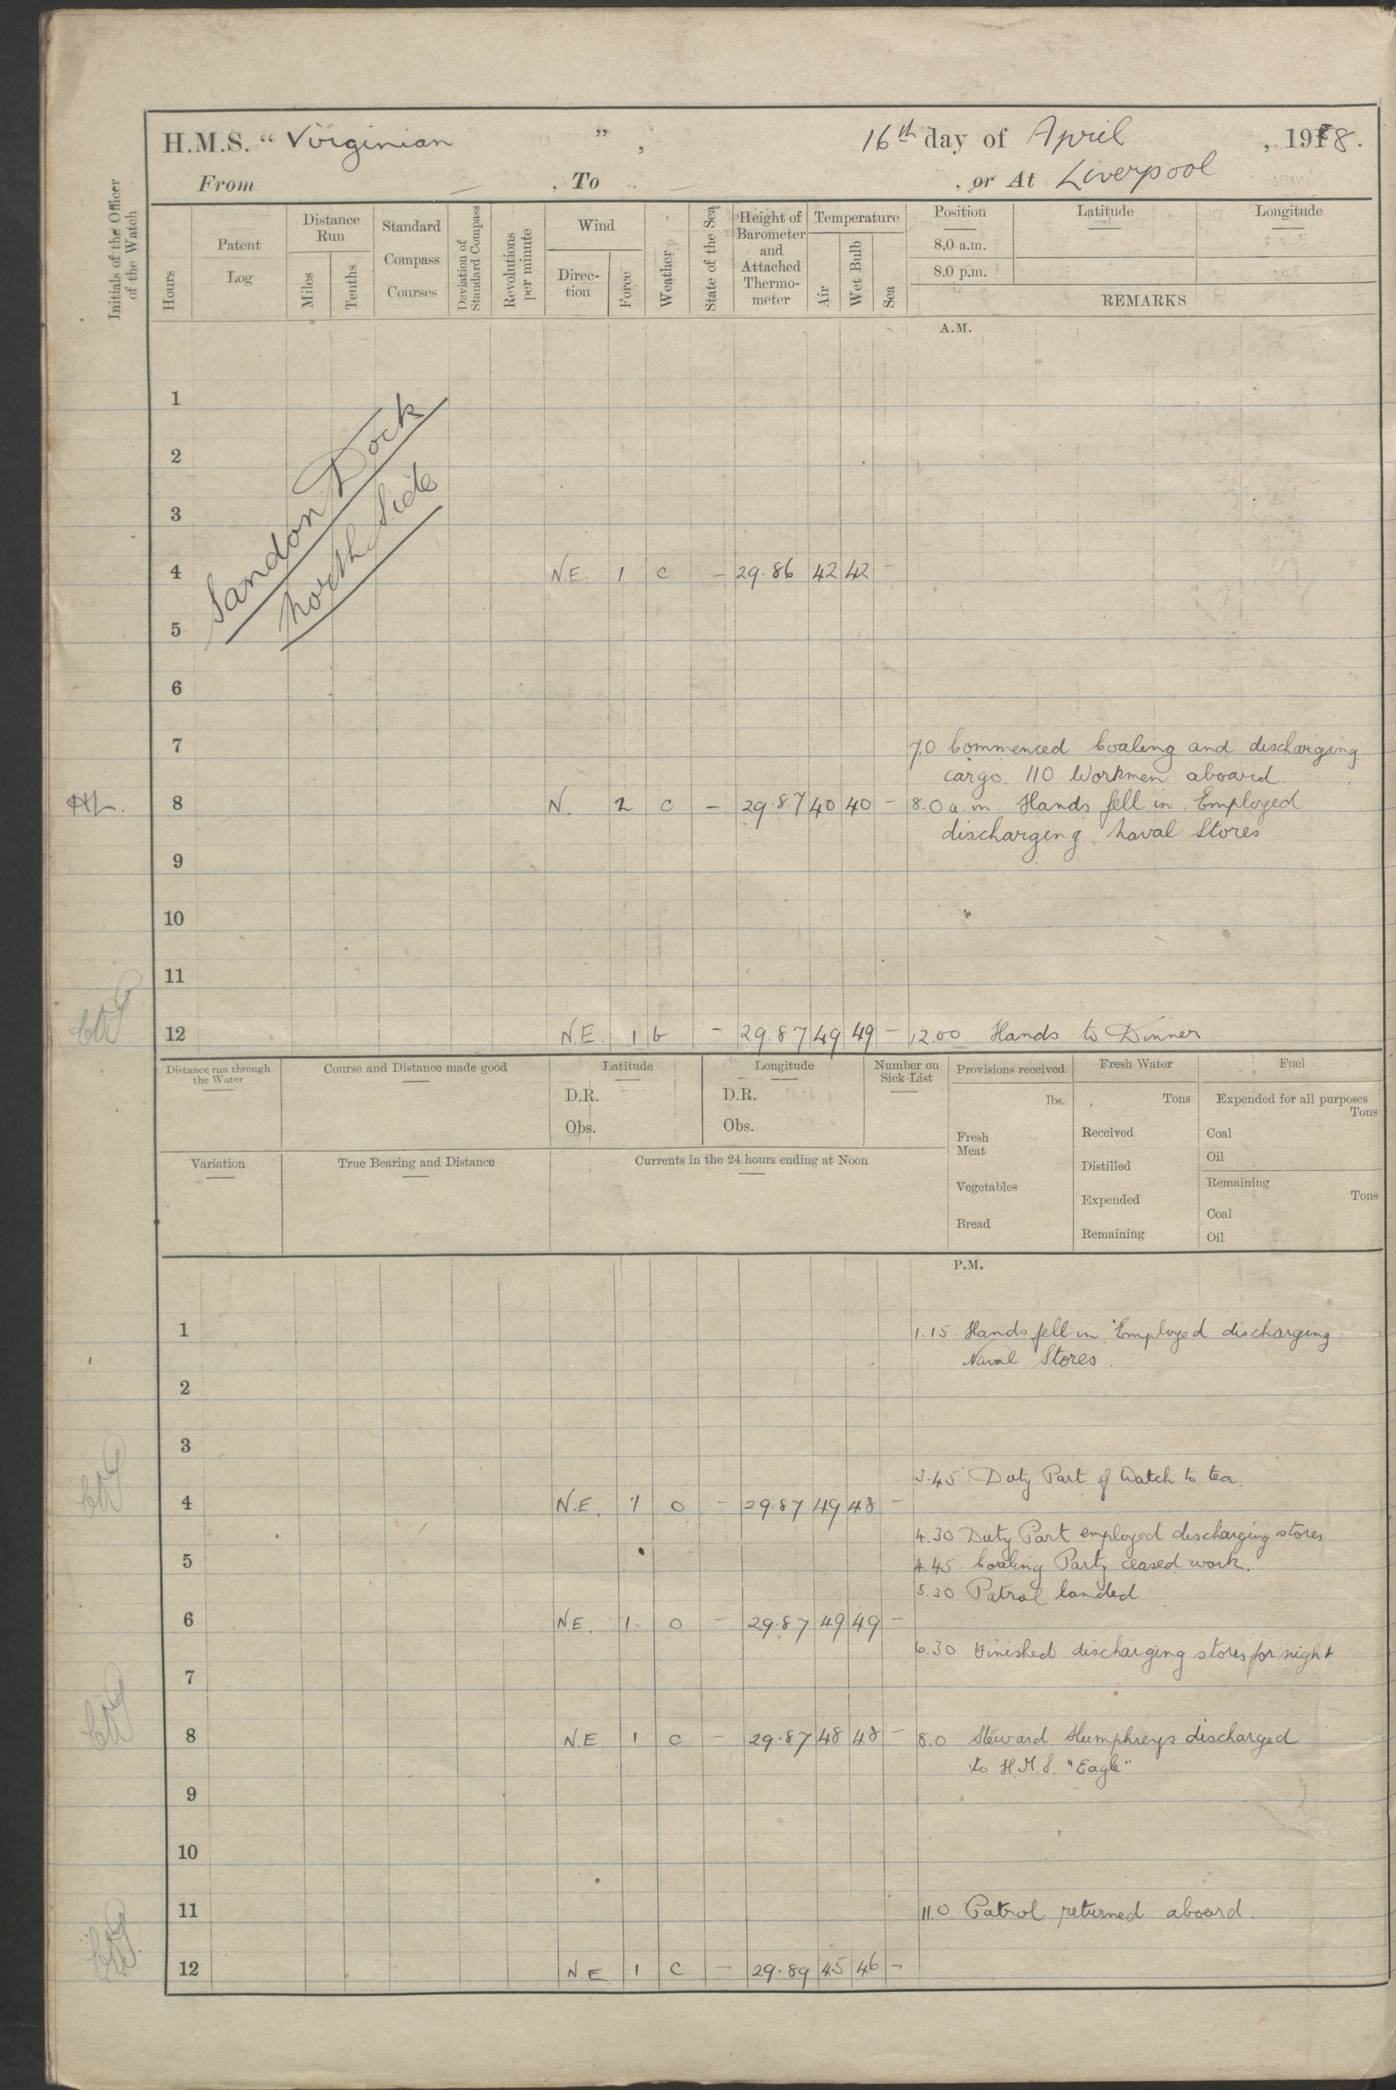 H.M.S. “ Virginian ”, 16th day of April, 1918.
From — , To — , or At Liverpool
Initials of the Officer of the Watch
Hours
Patent Log
Distance Run
Miles
Tenths
Standard Compass Courses
Deviation of Standard Compass
Revolutions per minute
Wind
Direc-tion
Force
Weather
State of the Sea
Height of Barometer and Attached Thermo-meter
Temperature
Air
Wet Bulb
Sea
Position Latitude Longitude
8.0 a.m.
8.0 p.m.
REMARKS
A.M.
Sandon Dock
North Side
1
2
3
4 N.E. 1 c – 29.86 42 42 –
5
6
7 7.0 Commenced Coaling and discharging
cargo. 110 Workmen aboard
8 N. 2 c – 29.87 40 40 – 8.0 a.m. Hands fell in. Employed
discharging Naval Stores
9
10
11
12 N.E. 1 b – 29.87 49 49 – 12.00 Hands to Dinner
Distance run through the Water
Course and Distance made good
Latitude
D.R.
Obs.
Longitude
D.R.
Obs.
Number on Sick List
Variation
True Bearing and Distance
Currents in the 24 hours ending at Noon
Provisions received
lbs.
Fresh Meat
Vegetables
Bread
Fresh Water
Tons
Received
Distilled
Expended
Remaining
Fuel
Expended for all purposes
Tons
Coal
Oil
Remaining
Tons
Coal
Oil
P.M.
1 1.15 Hands fell in. Employed discharging
Naval Stores.
2
3
3.45 Duty Part of Watch to tea.
4 N.E. 1 o – 29.87 49 48 –
4.30 Duty Part employed discharging stores
5 4.45 Coaling Party ceased work.
5.30 Patrol landed
6 N.E. 1 o – 29.87 49 49 –
6.30 Finished discharging stores for night
7
8 N.E 1 c – 29.87 48 48 – 8.0 Steward Humphreys discharged
to H.M.S. "Eagle"
9
10
11 11.0 Patrol returned aboard.
12 N.E 1 c – 29.89 45 46 –